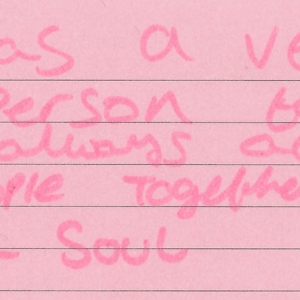 as a ve
Person
always a
ple Together
Soul